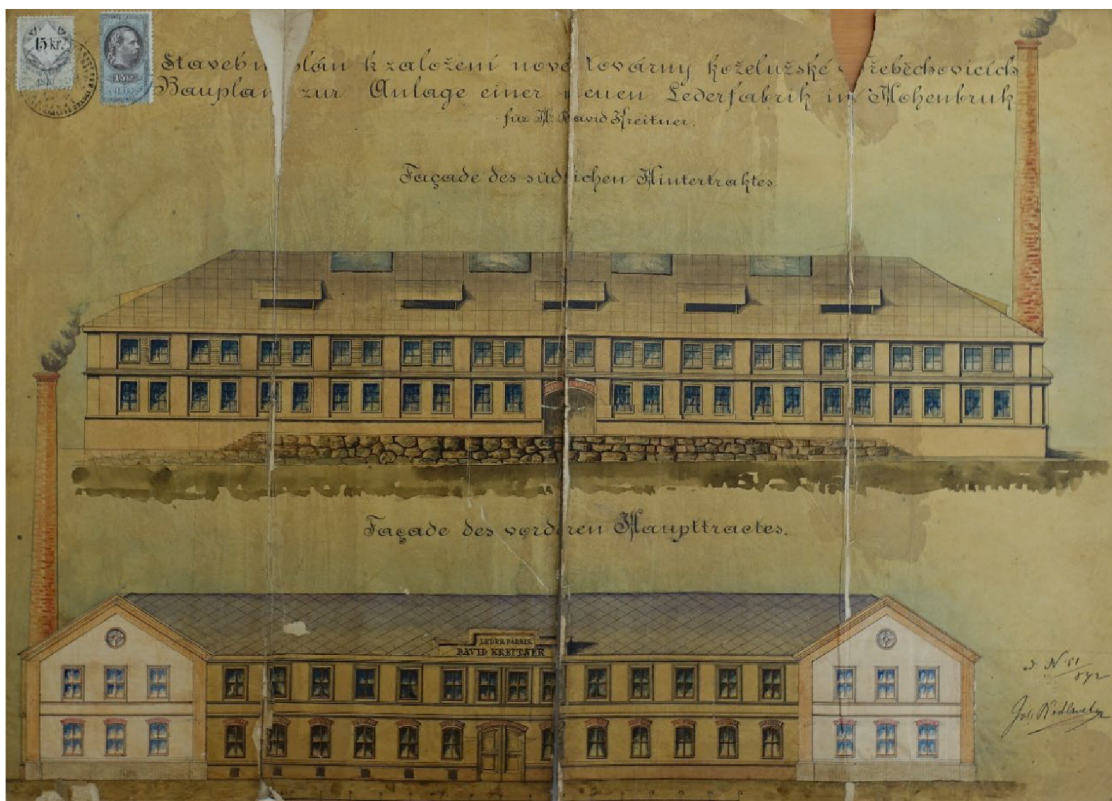 15 kr.
Stavební plán k založení nové továrny koželužské v Třebechovicích
Bauplan zur Anlage einer neuen Lederfabrik in Hohenbruk
für H. David Kreitner.
Façade des südlichen Hintertraktes
Façade des vorderen Haupttractes.
LEDER FABRIK
DAVID KREITNER